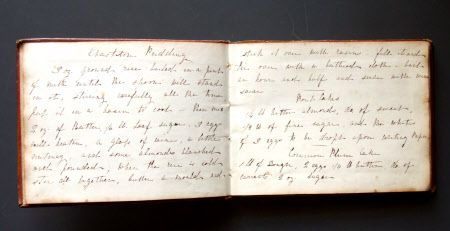 Charlston Pudding
3 oz ground rice boiled in a pint
of milk until the spoon will stand
in it, stirring carefully all the time
put it in a basin to cool - then mix
3 oz of Butter, ¼ lb Loaf sugar, 3 eggs
well beaten, a glass of wine, a little
nutmeg, and some almonds blanched
and pounded, when the rice is cold
stir all together, butter a mould and
stick it over with raisins - fill
over with a buttered cloth - boil
an hour and half and serve with wine
sauce
Cakes
¼ lb bitter almonds, do of sweet,
lb of fine sugar, and the whites
of 3 eggs to be dropt upon writing paper
Common Plum Cake
1 lb of Dough, 2 eggs, ¼ lb butter, do of
currants 3 oz Sugar